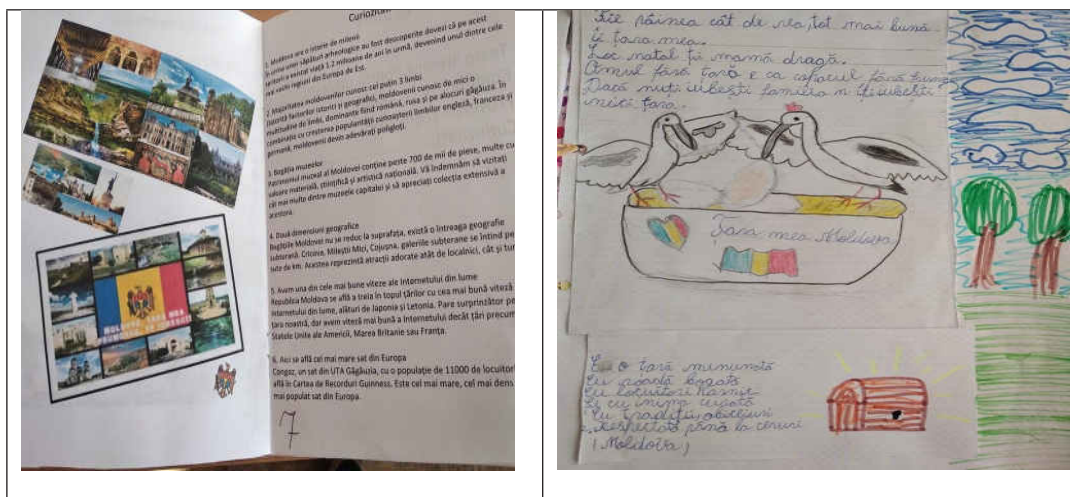 Curiozită
1. Moldova are o istorie de milenii
În urma unor săpături arheologice au fost descoperite dovezi că pe acest
teritoriu a existat viață 1.2 milioane de ani în urmă, devenind unul dintre cele
mai vechi regiuni din Europa de Est.
2. Majoritatea moldovenilor cunosc cel puțin 3 limbi
Datorită factorilor istorici și geografici, moldovenii cunosc de mici o
multitudine de limbi, dominante fiind româna, rusa și pe alocuri găgăuza. În
combinație cu creșterea popularității cunoașterii limbilor engleză, franceza și
germană, moldovenii devin adevărați poligloți.
3. Bogăția muzeelor
Patrimoniul muzeal al Moldovei conține peste 700 de mii de piese, multe cu
valoare materială, științifică și artistică națională. Vă îndemnăm să vizitați
cât mai multe dintre muzeele capitalei și să apreciați colecția extensivă a
acestora.
4. Două dimensiuni geografice
Bogățiile Moldovei nu se reduc la suprafața, există o întreaga geografie
subterană. Cricova, Mileștii Mici, Cojușna, galeriile subterane se întind pe
sute de km. Acestea reprezintă atracții adorate atât de localnici, cât și tur
5. Avem una din cele mai bune viteze ale internetului din lume
Republica Moldova se află a treia în topul țărilor cu cea mai bună viteză
internetului din lume, alături de Japonia și Letonia. Pare surprinzător pe
țara noastră, dar avem viteză mai bună a internetului decât țări precum
Statele Unite ale Americii, Marea Britanie sau Franța.
6. Aici se află cel mai mare sat din Europa
Congaz, un sat din UTA Găgăuzia, cu o populație de 11000 de locuitori
află în Cartea de Recorduri Guinness. Este cel mai mare, cel mai dens
mai populat sat din Europa.
7
MOLDOVA, ȚARA MEA
Fie pâinea cât de rea, tot mai bună
îi țara mea.
Loc natal ții mamă dragă.
Omul fără țară e ca copacul fără
Dacă nuți iubești familia n iți iubești
nici țara.
Țara mea Moldova
E o țară minunată
Cu poală bogată
Cu locuitori harnici
Și cu inima curată
Cu tradiții, obiceiuri
Respectată până la ceruri
(Moldova)